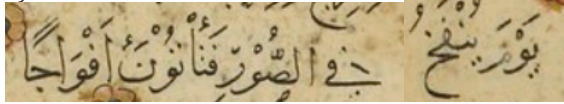 يَوْمَ يُنْفَخُ فِي الصُّوْرِ فَتَأْتُوْنَ أَفْوَاجًا